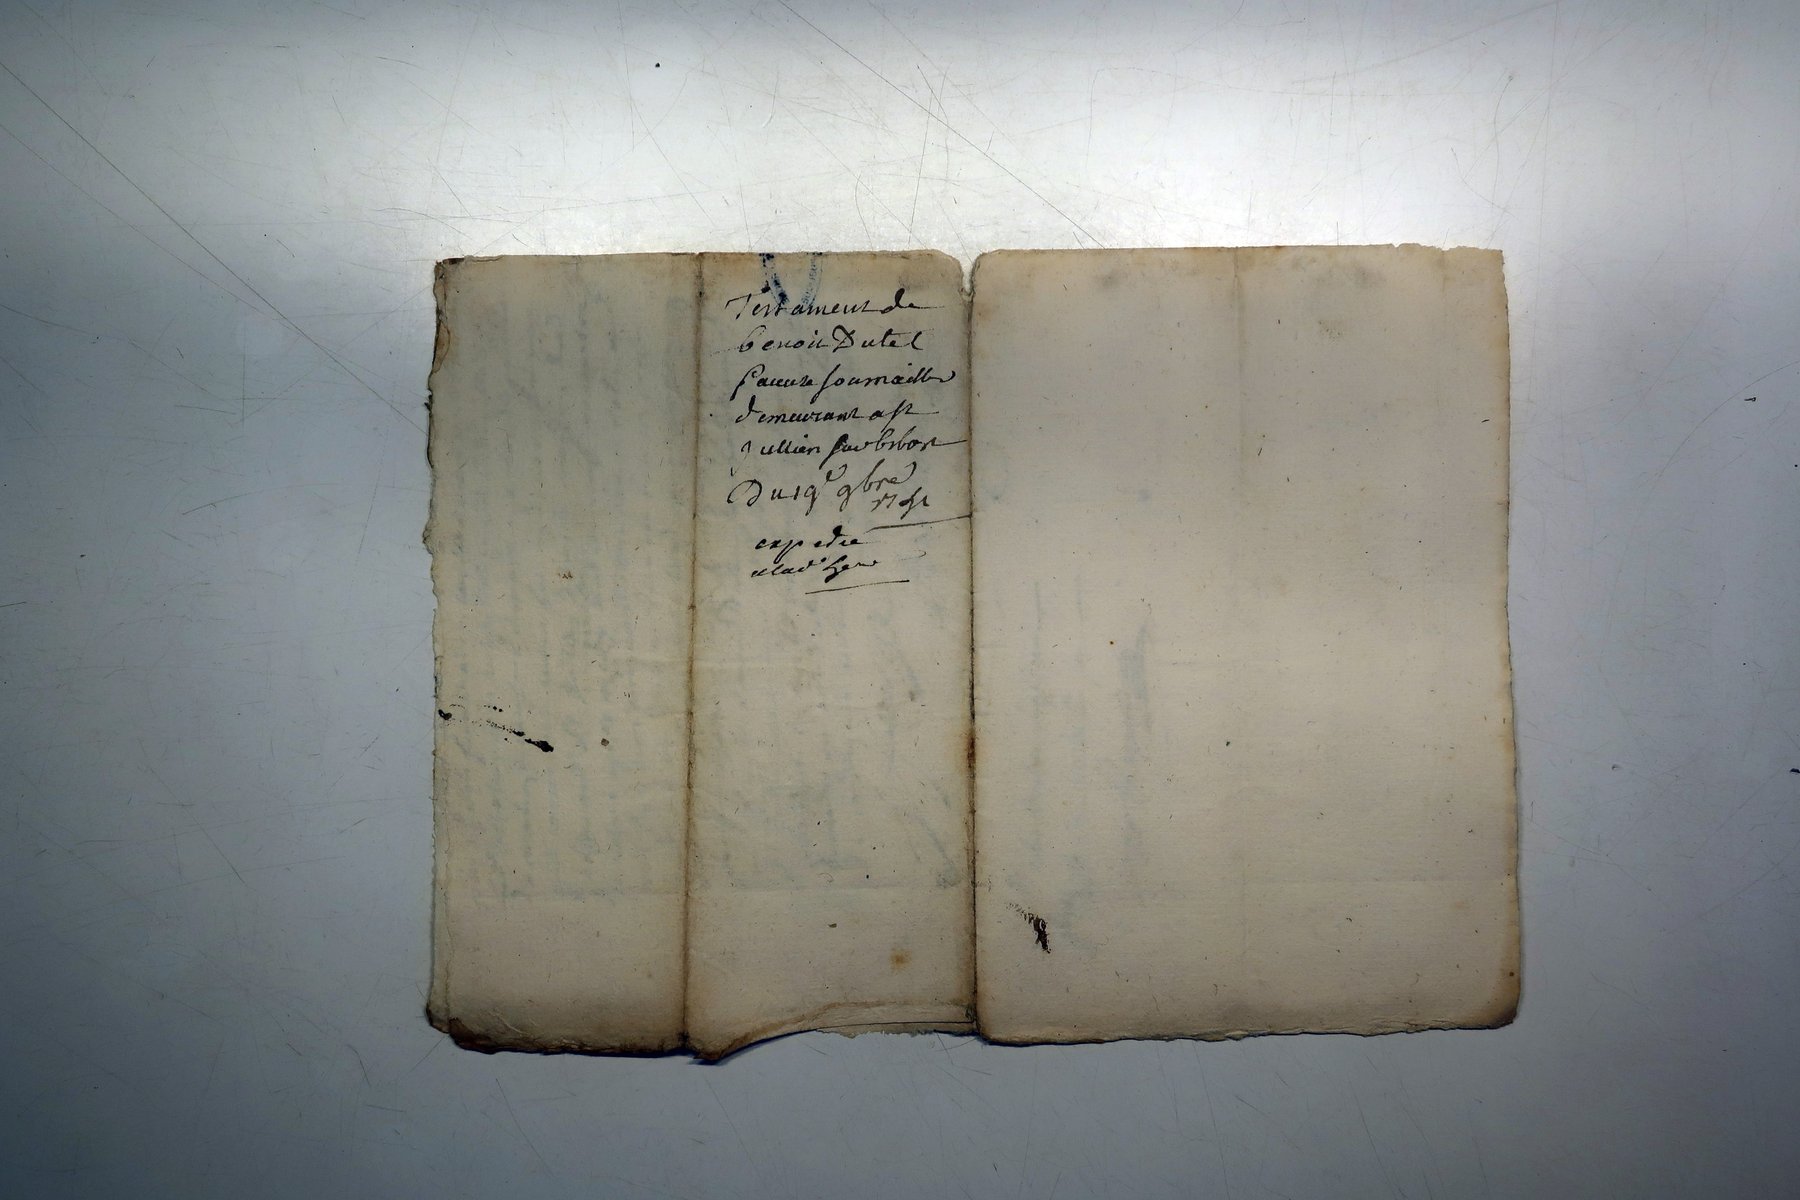 Testament de
benoit Dutel
journaillier
demeurant a st
jullien sur bibost
Du 19e 9bre
expedie